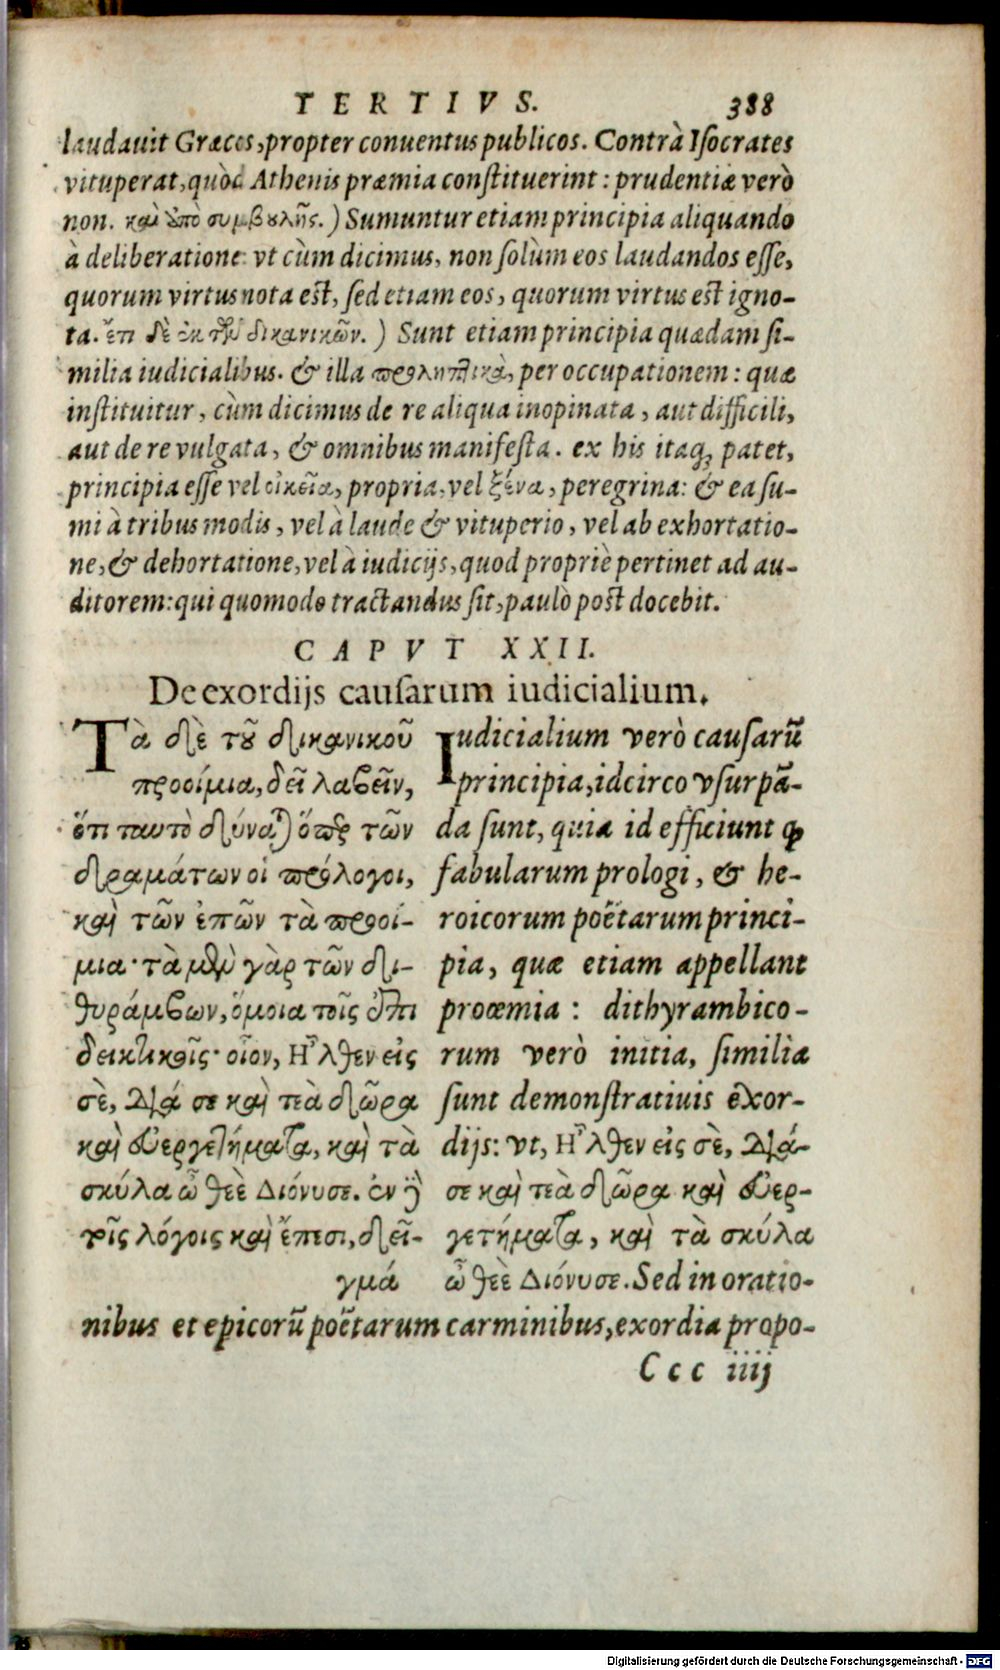 TERTIVS. 388
laudauit Græcos, propter conuentus publicos. Contrà Isocrates
vituperat, quòd Athenis præmia constituerint: prudentiæ verò
non. καὶ ἀπὸ συμβουλῆς.) Sumuntur etiam principia aliquando
à deliberatione vt cùm dicimus, non solùm eos laudandos esse,
quorum virtus nota est, sed etiam eos, quorum virtus est igno-
ta. ἔτι δὲ ἐκ τῶν δικανικῶν.) Sunt etiam principia quædam si-
milia iudicialibus. & illa προληπτικὰ, per occupationem: quæ
instituitur, cùm dicimus de re aliqua inopinata, aut difficili,
aut de re vulgata, & omnibus manifesta. ex his itaq; patet,
principia esse vel οἰκεῖα, propria, vel ξένα, peregrina: & ea su-
mi à tribus modis, vel à laude & vituperio, vel ab exhortatio-
ne, & dehortatione, vel à iudicijs, quod propriè pertinet ad au-
ditorem: qui quomodo tractandus sit, paulò post docebit.
CAPVT XXII.
De exordijs causarum iudicialium.
Τὰ δὲ τοῦ δικανικοῦ
προοίμια, δεῖ λαβεῖν,
ὅτι ταυτὸ δύναται ὅπερ τῶν
δραμάτων οἱ πρόλογοι,
καὶ τῶν ἐπῶν τὰ προοί-
μια· τὰ μὲν γὰρ τῶν δι-
θυράμβων, ὅμοια τοῖς ἐπι
δεικτικοῖς· οἷον, Ἦλθεν εἰς
σὲ, διά σε καὶ τεὰ δῶρα
καὶ εὐεργετήματα, καὶ τὰ
σκύλα ὦ θεὲ Διόνυσε. ἐν δὲ
τοῖς λόγοις καὶ ἔπεσι, δεῖ-
γμά
Iudicialium verò causarū
principia, idcirco vsurpā-
da sunt, quia id efficiunt ꝙ
fabularum prologi, & he-
roicorum poëtarum princi-
pia, quæ etiam appellant
proœmia: dithyrambico-
rum verò initia, similia
sunt demonstratiuis exor-
dijs: vt, Ἦλθεν εἰς σὲ, διά-
σε καὶ τεὰ δῶρα καὶ εὐερ-
γετήματα, καὶ τὰ σκύλα
ὦ θεὲ Διόνυσε. Sed in oratio-
nibus et epicorū poëtarum carminibus, exordia propo-
Ccc iiij
Digitalisierung gefördert durch die Deutsche Forschungsgemeinschaft - DFG